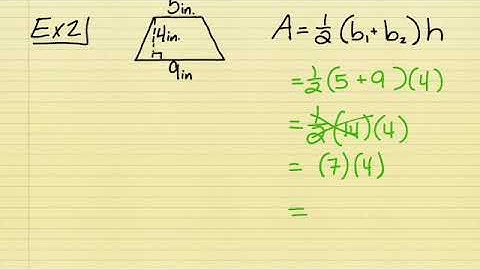 Ex2
5in.
4in.
9in
A = 1/2 (b₁ + b₂) h
= 1/2 (5 + 9) (4)
= 1/2 (14) (4)
= (7) (4)
=